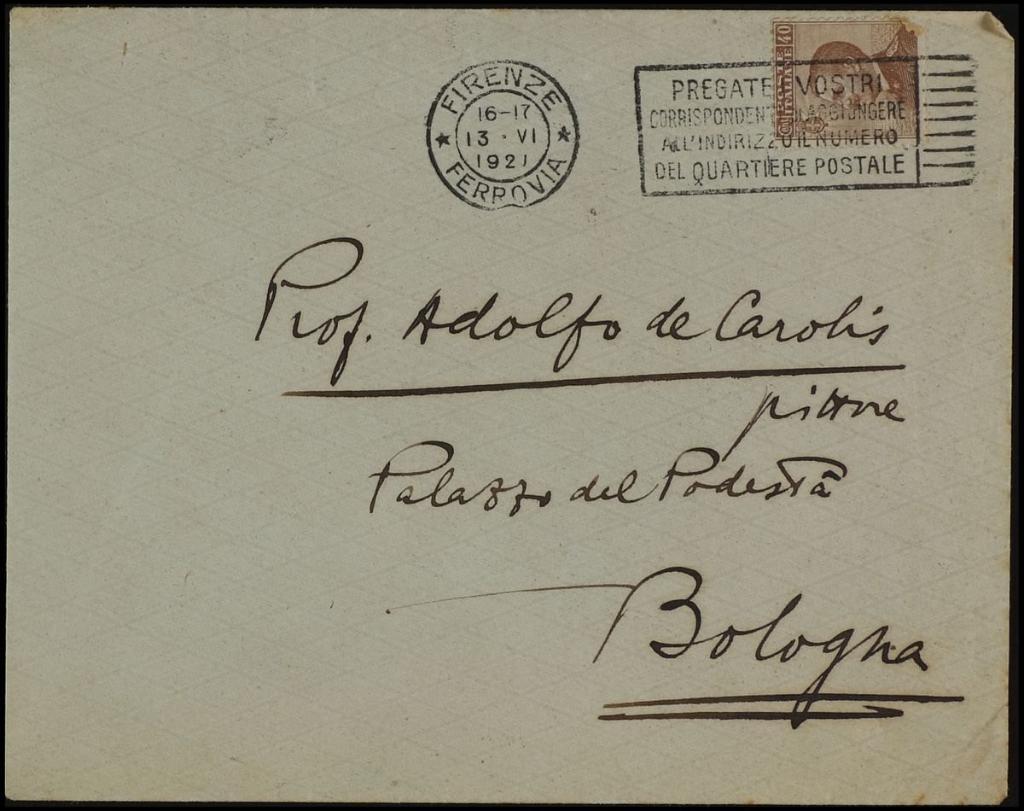 FIRENZE
16-17
13 · VI
1921
FERROVIA
PREGATE VOSTRI
CORRISPONDENTI AGGIUNGERE
ALL'INDIRIZZO IL NUMERO
DEL QUARTIERE POSTALE
40
Prof. Adolfo de Carolis
pittore
Palazzo del Podestà
Bologna